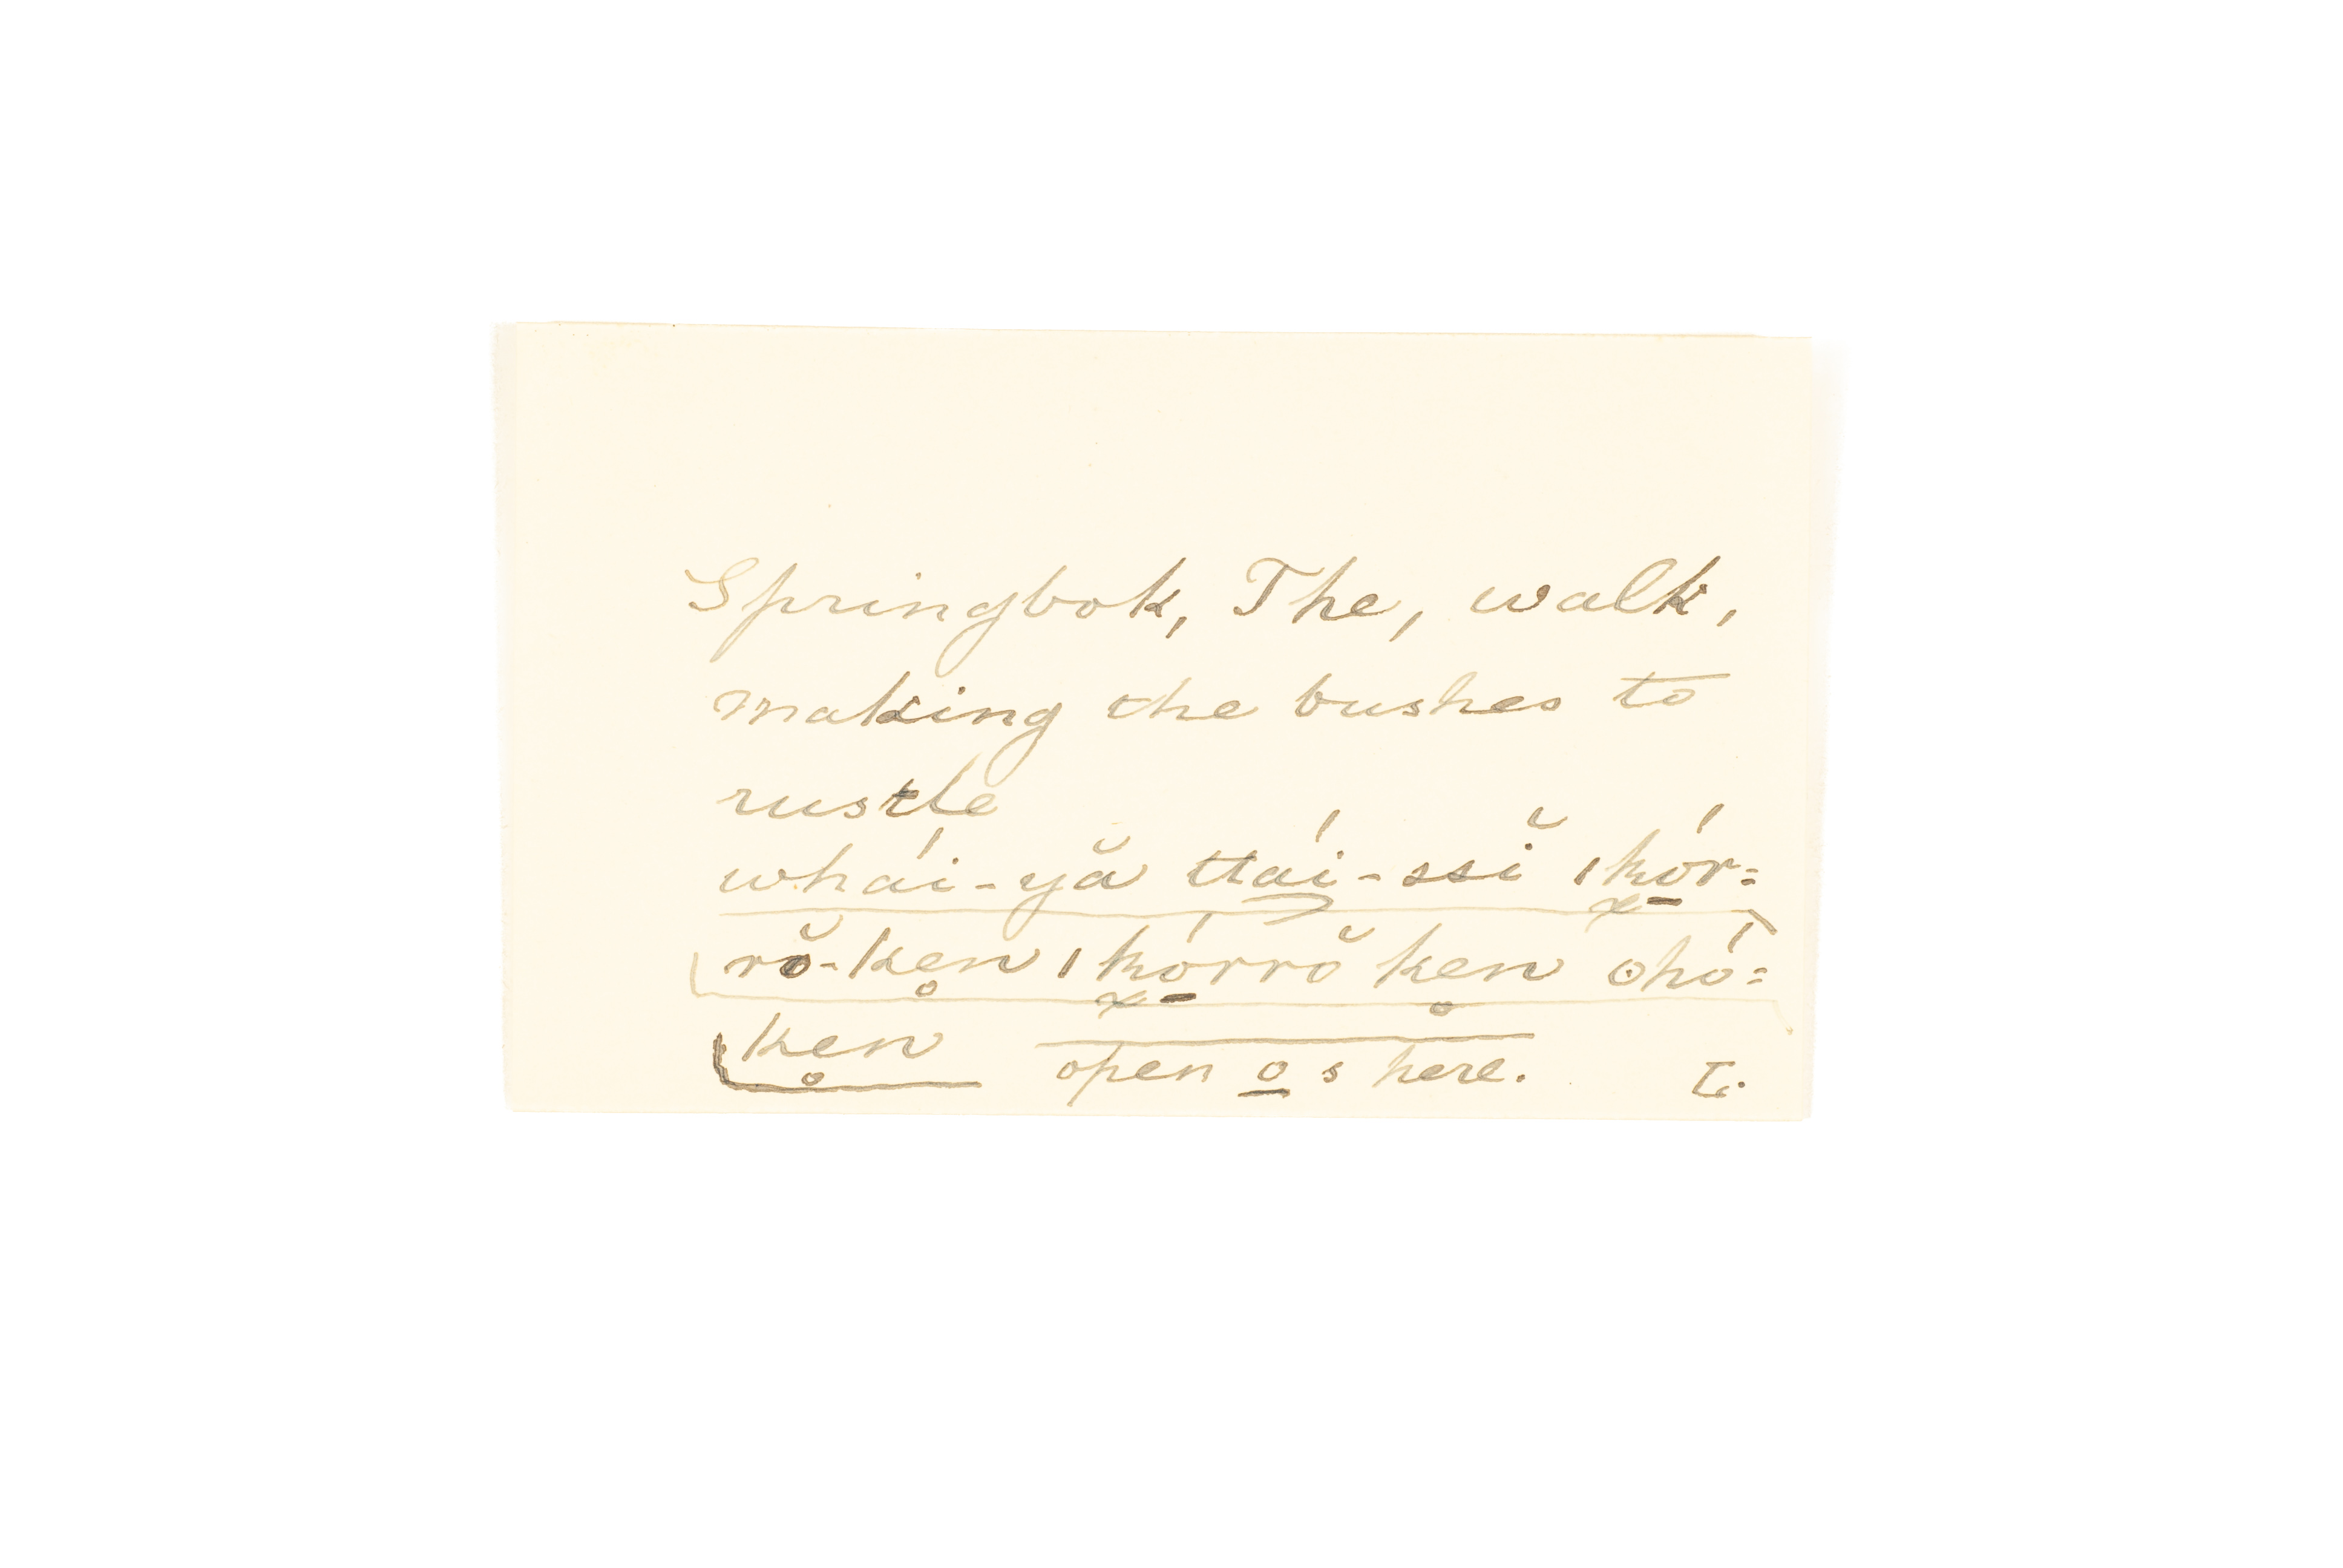 Springbok, The, walk,
making the bushes to
rustle
whái-yă ttái-ssĭ ǀkór=
rŏ-ken ǀkórrŏ ken ohó=
ken
open o s here. T.